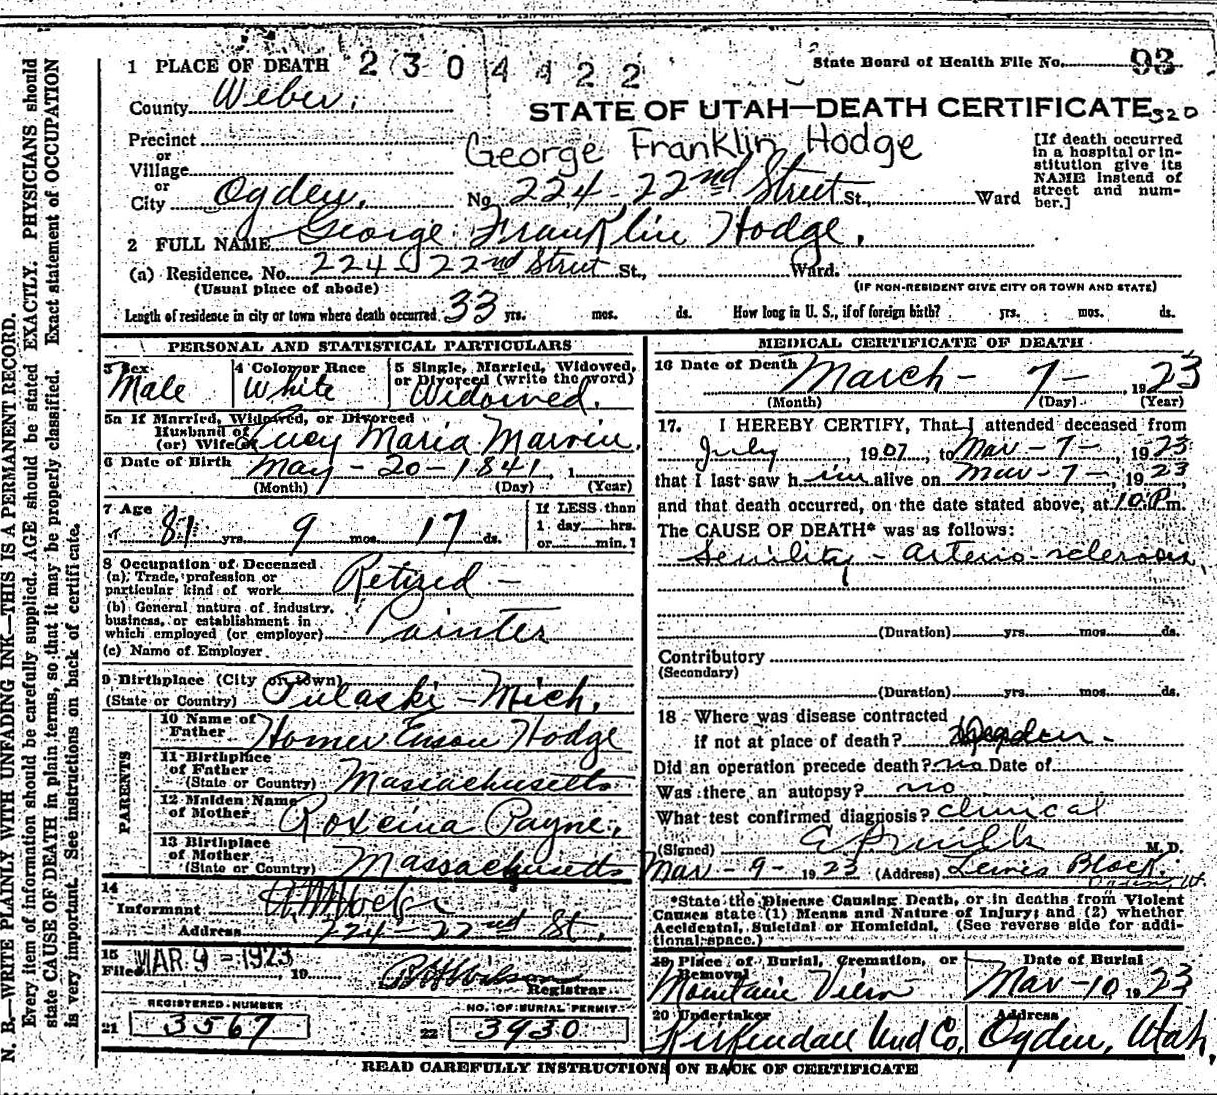 1 PLACE OF DEATH 2304422
State Board of Health File No. 93
County Weber.
STATE OF UTAH—DEATH CERTIFICATE 320
Precinct
or
Village
or
City Ogden.
George Franklin Hodge
No. 224-22nd Street St., Ward
[If death occurred
in a hospital or in-
stitution give its
NAME instead of
street and num-
ber.]
2 FULL NAME George Franklin Hodge.
(a) Residence. No. 224-22nd Street St., Ward.
(Usual place of abode) (IF NON-RESIDENT GIVE CITY OR TOWN AND STATE)
Length of residence in city or town where death occurred 33 yrs. mos. ds. How long in U. S., if of foreign birth? yrs. mos. ds.
PERSONAL AND STATISTICAL PARTICULARS
3 Sex
Male
4 Color or Race
White
5 Single, Married, Widowed,
or Divorced (write the word)
Widowed.
5a If Married, Widowed, or Divorced
Husband of
(or) Wife of Lucy Maria Marvin.
6 Date of Birth May-20-1841, 1
(Month) (Day) (Year)
7 Age
81 yrs. 9 mos. 17 ds.
If LESS than
1 day hrs.
or min.?
8 Occupation of Deceased
(a) Trade, profession or
particular kind of work Retired-
(b) General nature of industry,
business, or establishment in
which employed (or employer) Painter
(c) Name of Employer
9 Birthplace (City or town)
(State or Country) Pulaski-Mich.
PARENTS
10 Name of
Father Homer Enson Hodge
11 Birthplace
of Father
(State or Country) Massachusetts
12 Maiden Name
of Mother Roxcina Payne.
13 Birthplace
of Mother
(State or Country) Massachusetts
14
Informant
Address 224-22nd St.
15
Filed MAR 9-1923, 19
Registrar
REGISTERED NUMBER
21 3567
NO. OF BURIAL PERMIT
22 3930
MEDICAL CERTIFICATE OF DEATH
16 Date of Death March-7-1923
(Month) (Day) (Year)
17. I HEREBY CERTIFY, That I attended deceased from
July, 1907, to Mar-7-, 1923
that I last saw him alive on Mar-7-, 1923,
and that death occurred, on the date stated above, at 10 P m.
The CAUSE OF DEATH* was as follows:
Senility-arterio-sclerosis
(Duration) yrs. mos. ds.
Contributory
(Secondary)
(Duration) yrs. mos. ds.
18 Where was disease contracted
if not at place of death? Ogden-
Did an operation precede death? no Date of
Was there an autopsy? no
What test confirmed diagnosis? clinical
(Signed) M. D.
Mar-9-1923 (Address) Lewis Block.
Ogden, Ut.
*State the Disease Causing Death, or in deaths from Violent
Causes state (1) Means and Nature of Injury; and (2) whether
Accidental, Suicidal or Homicidal. (See reverse side for addi-
tional space.)
19 Place of Burial, Cremation, or
Removal
Mountain View
Date of Burial
Mar-10 1923
20 Undertaker
Kirkendall Und Co.
Address
Ogden, Utah.
READ CAREFULLY INSTRUCTIONS ON BACK OF CERTIFICATE
N. B.—WRITE PLAINLY WITH UNFADING INK—THIS IS A PERMANENT RECORD.
Every item of information should be carefully supplied. AGE should be stated EXACTLY. PHYSICIANS should
state CAUSE OF DEATH in plain terms, so that it may be properly classified. Exact statement of OCCUPATION
is very important. See instructions on back of certificate.